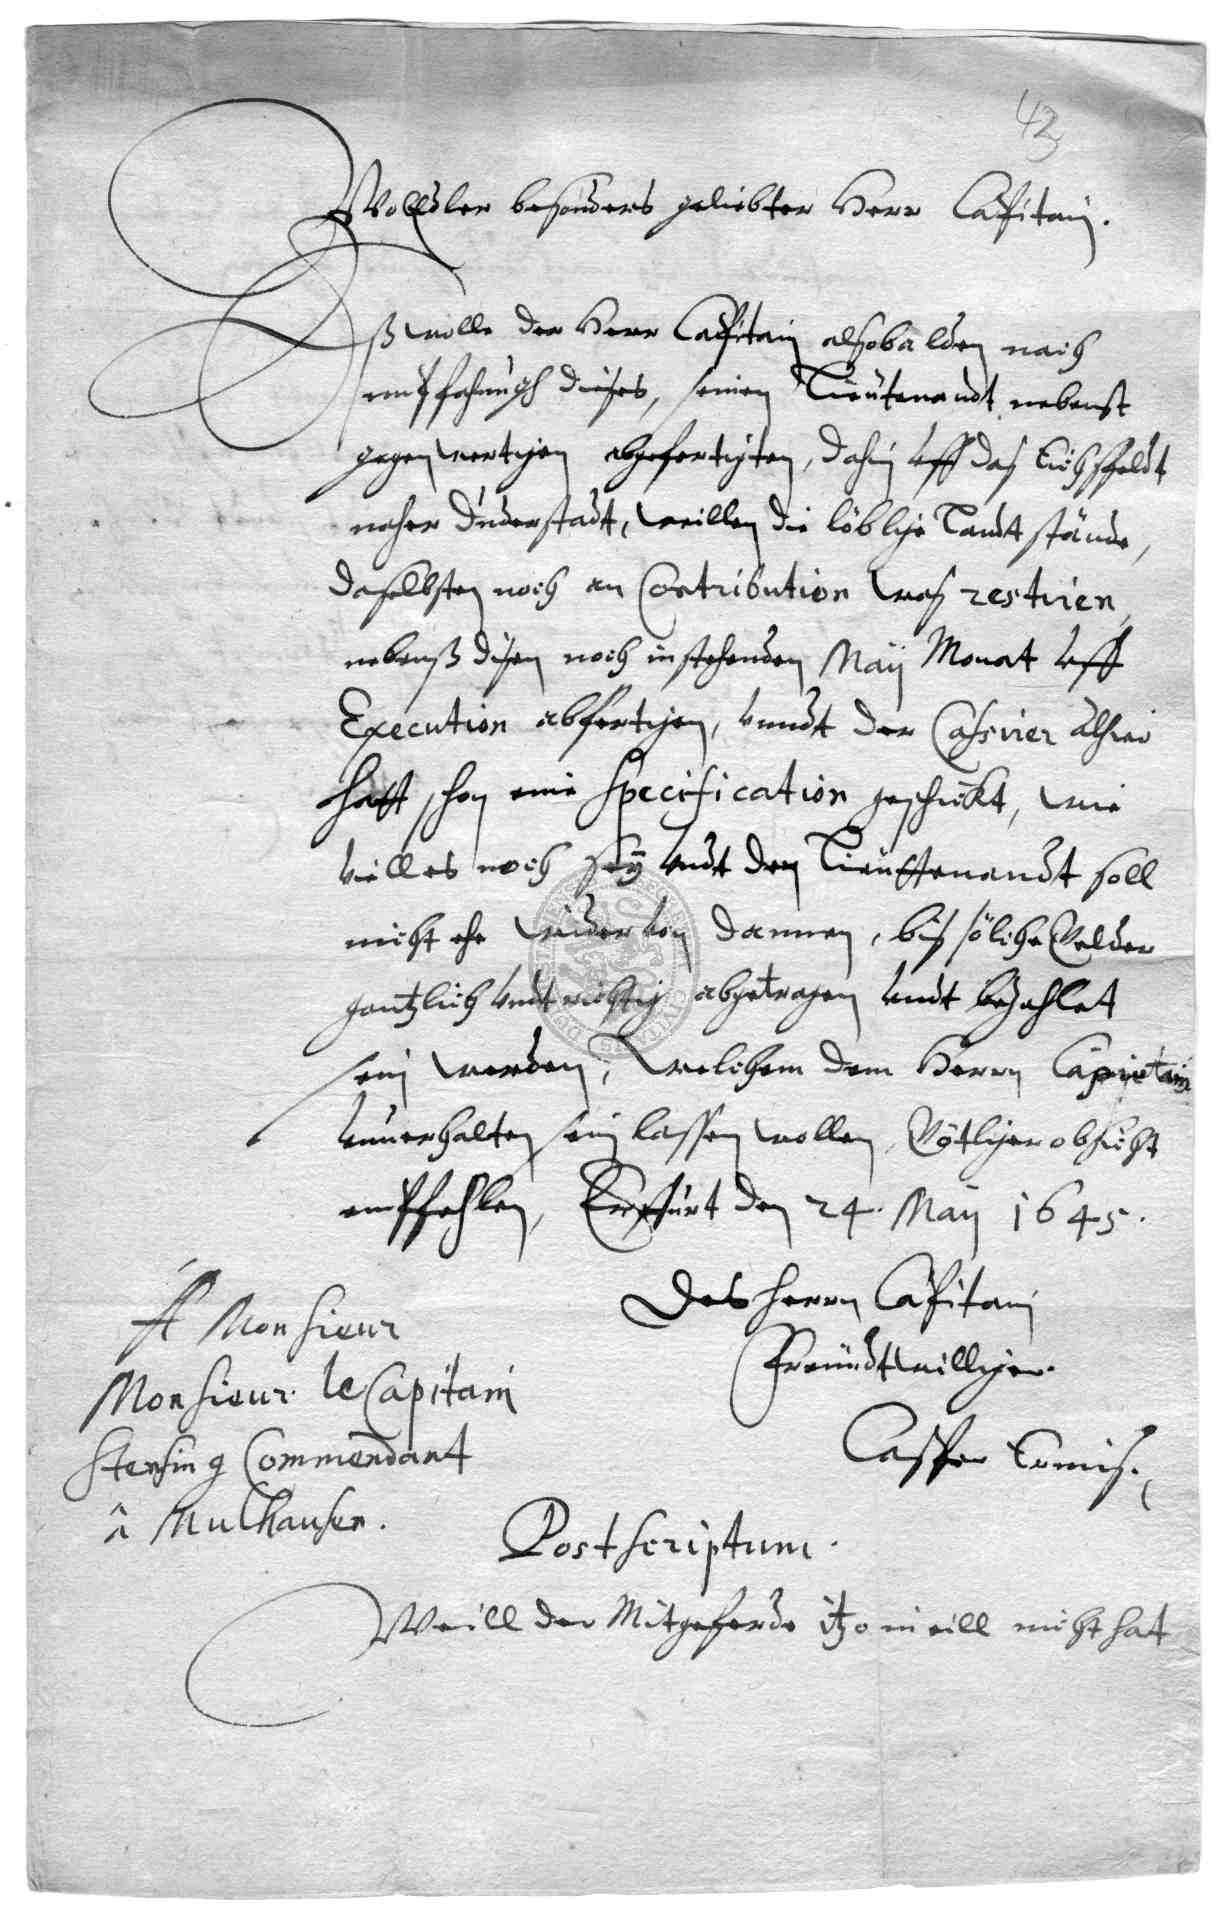 42
WollEdler besonders geliebter Herr Capitain.
Eß wolle der Herr Capitain alsobalden nach
empfahung dieses, seinen Lieutenandt nebenst
gegenwertigen abgefertigten, dahin uff das Eichsfeldt
naher Duderstadt, weillen die löblige Landtstände,
daselbsten noch an Contribution was restiren,
nebenst disen noch instehenden Maÿ Monat uff
Execution abfertigen, vnndt der Cassirer alhier
hatt schon eine Specification geschickt, wie
vielles noch seÿ vndt den Lieuttenandt soll
nicht ehe wider von dannen, bis söliche Gelder
gantzlich vndt richtig abgetragen vndt bezahlet
sein werden, welichem dem Herrn Capitain
vnuerhalten sein lassen wollen, Götlicher obsicht
empfehlen, Erffurt den 24. Maÿ 1645.
Des Herrn Capitain
Freundtwilliger.
Casper
A Monsieur
Monsieur le Capitain
Commendant
â Mulhausen.
Postscriptum.
Weill der Mitgeferde itzo in eill nicht hat